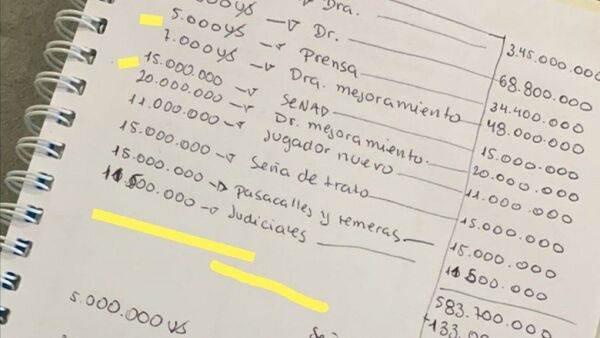 U$ → Dra. 345.000.000
→ Dr. 68.800.000
5.000 U$ → Prensa 34.400.000
7.000 U$ → Dra. mejoramiento 48.000.000
15.000.000 → SENAD 15.000.000
20.000.000 → Dr. mejoramiento. 20.000.000
11.000.000 → Jugador nuevo 11.000.000
15.000.000 → Seña de trato 15.000.000
15.000.000 → pasacalles y remeras 15.000.000
500.000 → Judiciales 500.000
583.700.000
133.00
5.000.000 U$